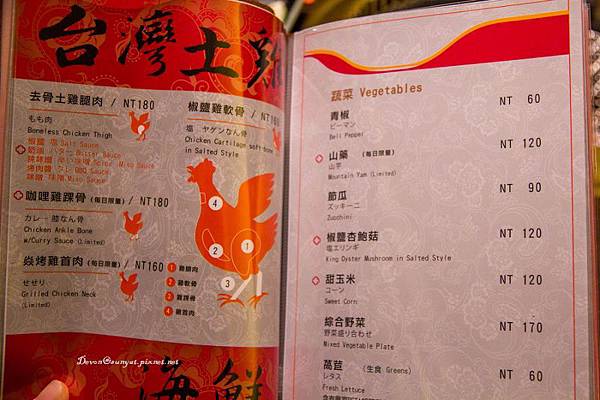 台灣土雞
去骨土雞腿肉 / NT180
もも肉
Boneless Chicken Thigh
椒鹽 塩 Salt Sauce
奶油 バター Butter Sauce
辣味噌 辛い味噌 Spicy Miso Sauce
烤肉醬 タレ BBQ Sauce
味噌 味噌 Miso Sauce
咖哩雞踝骨 (每日限量) / NT180
カレー 膝なん骨
Chicken Ankle Bone
w/Curry Sauce (Limited)
焱烤雞首肉 (每日限量) / NT160
せせり
Grilled Chicken Neck
(Limited)
椒鹽雞軟骨 / NT160
塩 ヤゲンなん骨
Chicken Cartilage soft bone
in Salted Style
4
1
2
3
1 雞腿肉
2 雞軟骨
3 雞踝骨
4 雞首肉
Devon@aunyat.pixnet.net
海鮮
蔬菜 Vegetables
青椒 NT 60
ピーマン
Bell Pepper
山藥 (每日限量) NT 120
山芋
Mountain Yam (Limited)
節瓜 NT 90
ズッキーニ
Zucchini
椒鹽杏鮑菇 NT 120
塩エリンギ
King Oyster Mushroom in Salted Style
甜玉米 NT 120
コーン
Sweet Corn
綜合野菜 NT 170
野菜盛り合わせ
Mixed Vegetable Plate
萵苣 (生食 Greens) NT 60
レタス
Fresh Lettuce